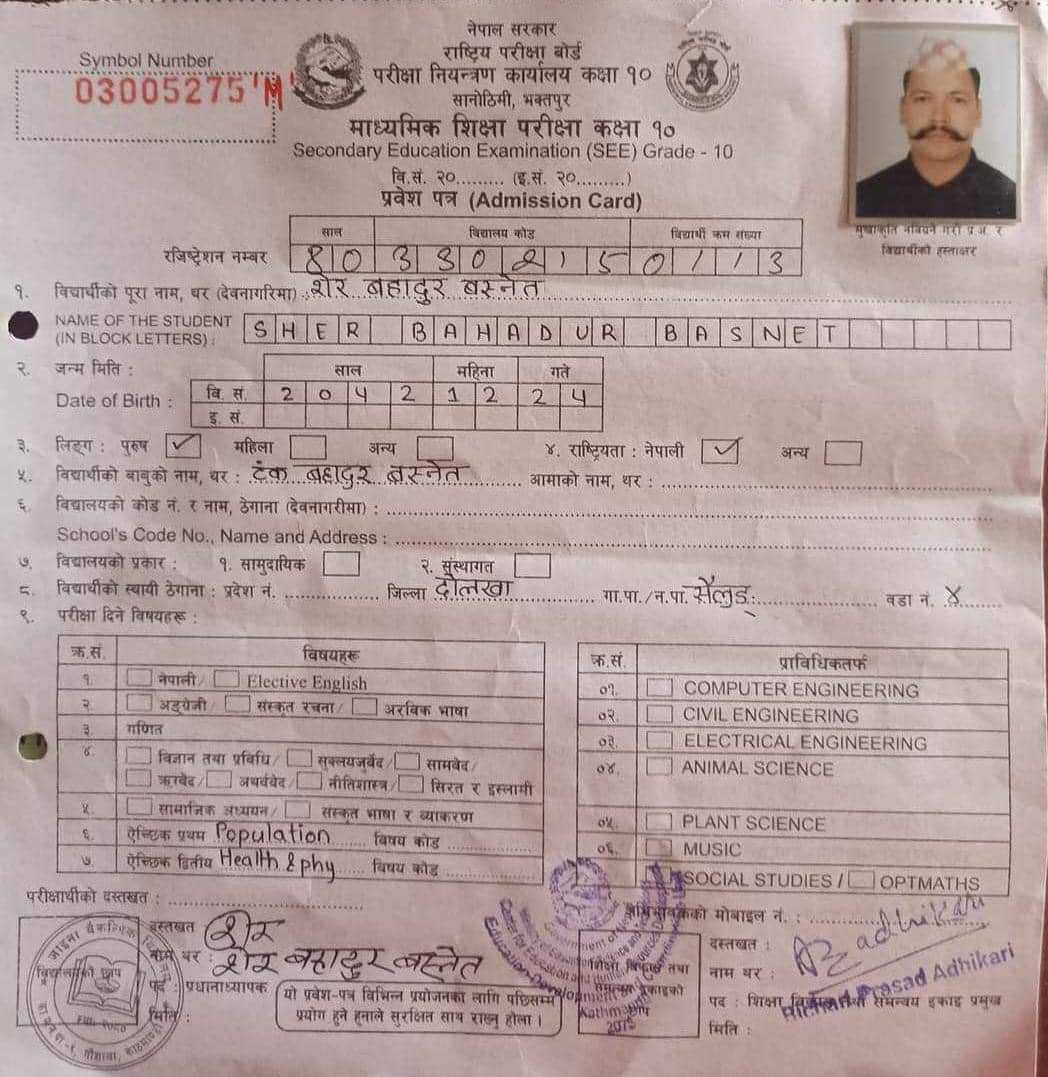 नेपाल सरकार
राष्ट्रिय परीक्षा बोर्ड
परीक्षा नियन्त्रण कार्यालय कक्षा १०
सानोठिमी, भक्तपुर
Symbol Number
03005275'M'
माध्यमिक शिक्षा परीक्षा कक्षा १०
Secondary Education Examination (SEE) Grade - 10
वि.सं. २०......... (इ.सं. २०.........)
प्रवेश पत्र (Admission Card)
विद्यार्थीको हस्ताक्षर
साल विद्यालय कोड विद्यार्थी क्रम संख्या
रजिष्ट्रेशन नम्बर
१. विद्यार्थीको पूरा नाम, थर (देवनागरिमा) : शेर बहादुर बस्नेत
NAME OF THE STUDENT (IN BLOCK LETTERS) : SHER BAHADUR BASNET
२. जन्म मिति : साल महिना गते
Date of Birth : वि. सं. 2 0 4 2 1 2 2 4
इ. सं.
३. लिङ्ग : पुरुष ✓ महिला अन्य ४. राष्ट्रियता : नेपाली ✓ अन्य
५. विद्यार्थीको बाबुको नाम, थर : टंक बहादुर बस्नेत आमाको नाम, थर :
६. विद्यालयको कोड नं. र नाम, ठेगाना (देवनागरीमा) :
School's Code No., Name and Address :
७. विद्यालयको प्रकार : १. सामुदायिक २. संस्थागत
८. विद्यार्थीको स्थायी ठेगाना : प्रदेश नं. जिल्ला दोलखा गा.पा./न.पा. सैलुङ वडा नं. ४
९. परीक्षा दिने विषयहरू :
क्र.सं. विषयहरू
१. नेपाली/ Elective English
२. अङ्ग्रेजी/ संस्कृत रचना/ अरबिक भाषा
३. गणित
४. विज्ञान तथा प्रविधि/ सुक्लयजुर्वेद/ सामवेद/
ऋग्वेद/ अथर्ववेद/ नीतिशास्त्र/ सिरत र इस्लामी
५. सामाजिक अध्ययन/ संस्कृत भाषा र व्याकरण
६. ऐच्छिक प्रथम Population विषय कोड
७. ऐच्छिक द्वितीय Health & phy विषय कोड
क्र.सं. प्राविधिकतर्फ
०१. COMPUTER ENGINEERING
०२. CIVIL ENGINEERING
०३. ELECTRICAL ENGINEERING
०४. ANIMAL SCIENCE
०५. PLANT SCIENCE
०६. MUSIC
SOCIAL STUDIES / OPTMATHS
परीक्षार्थीको दस्तखत :
अभिभावकको मोबाइल नं. :
दस्तखत शेर
नाम थर : शेर बहादुर बस्नेत
पद : प्रधानाध्यापक
मिति :
यो प्रवेश-पत्र विभिन्न प्रयोजनका लागि पछिसम्म
प्रयोग हुने हुनाले सुरक्षित साथ राख्नु होला ।
दस्तखत : adhikari
नाम थर : Prasad Adhikari
पद : शिक्षा समन्वय इकाइ प्रमुख
मिति :